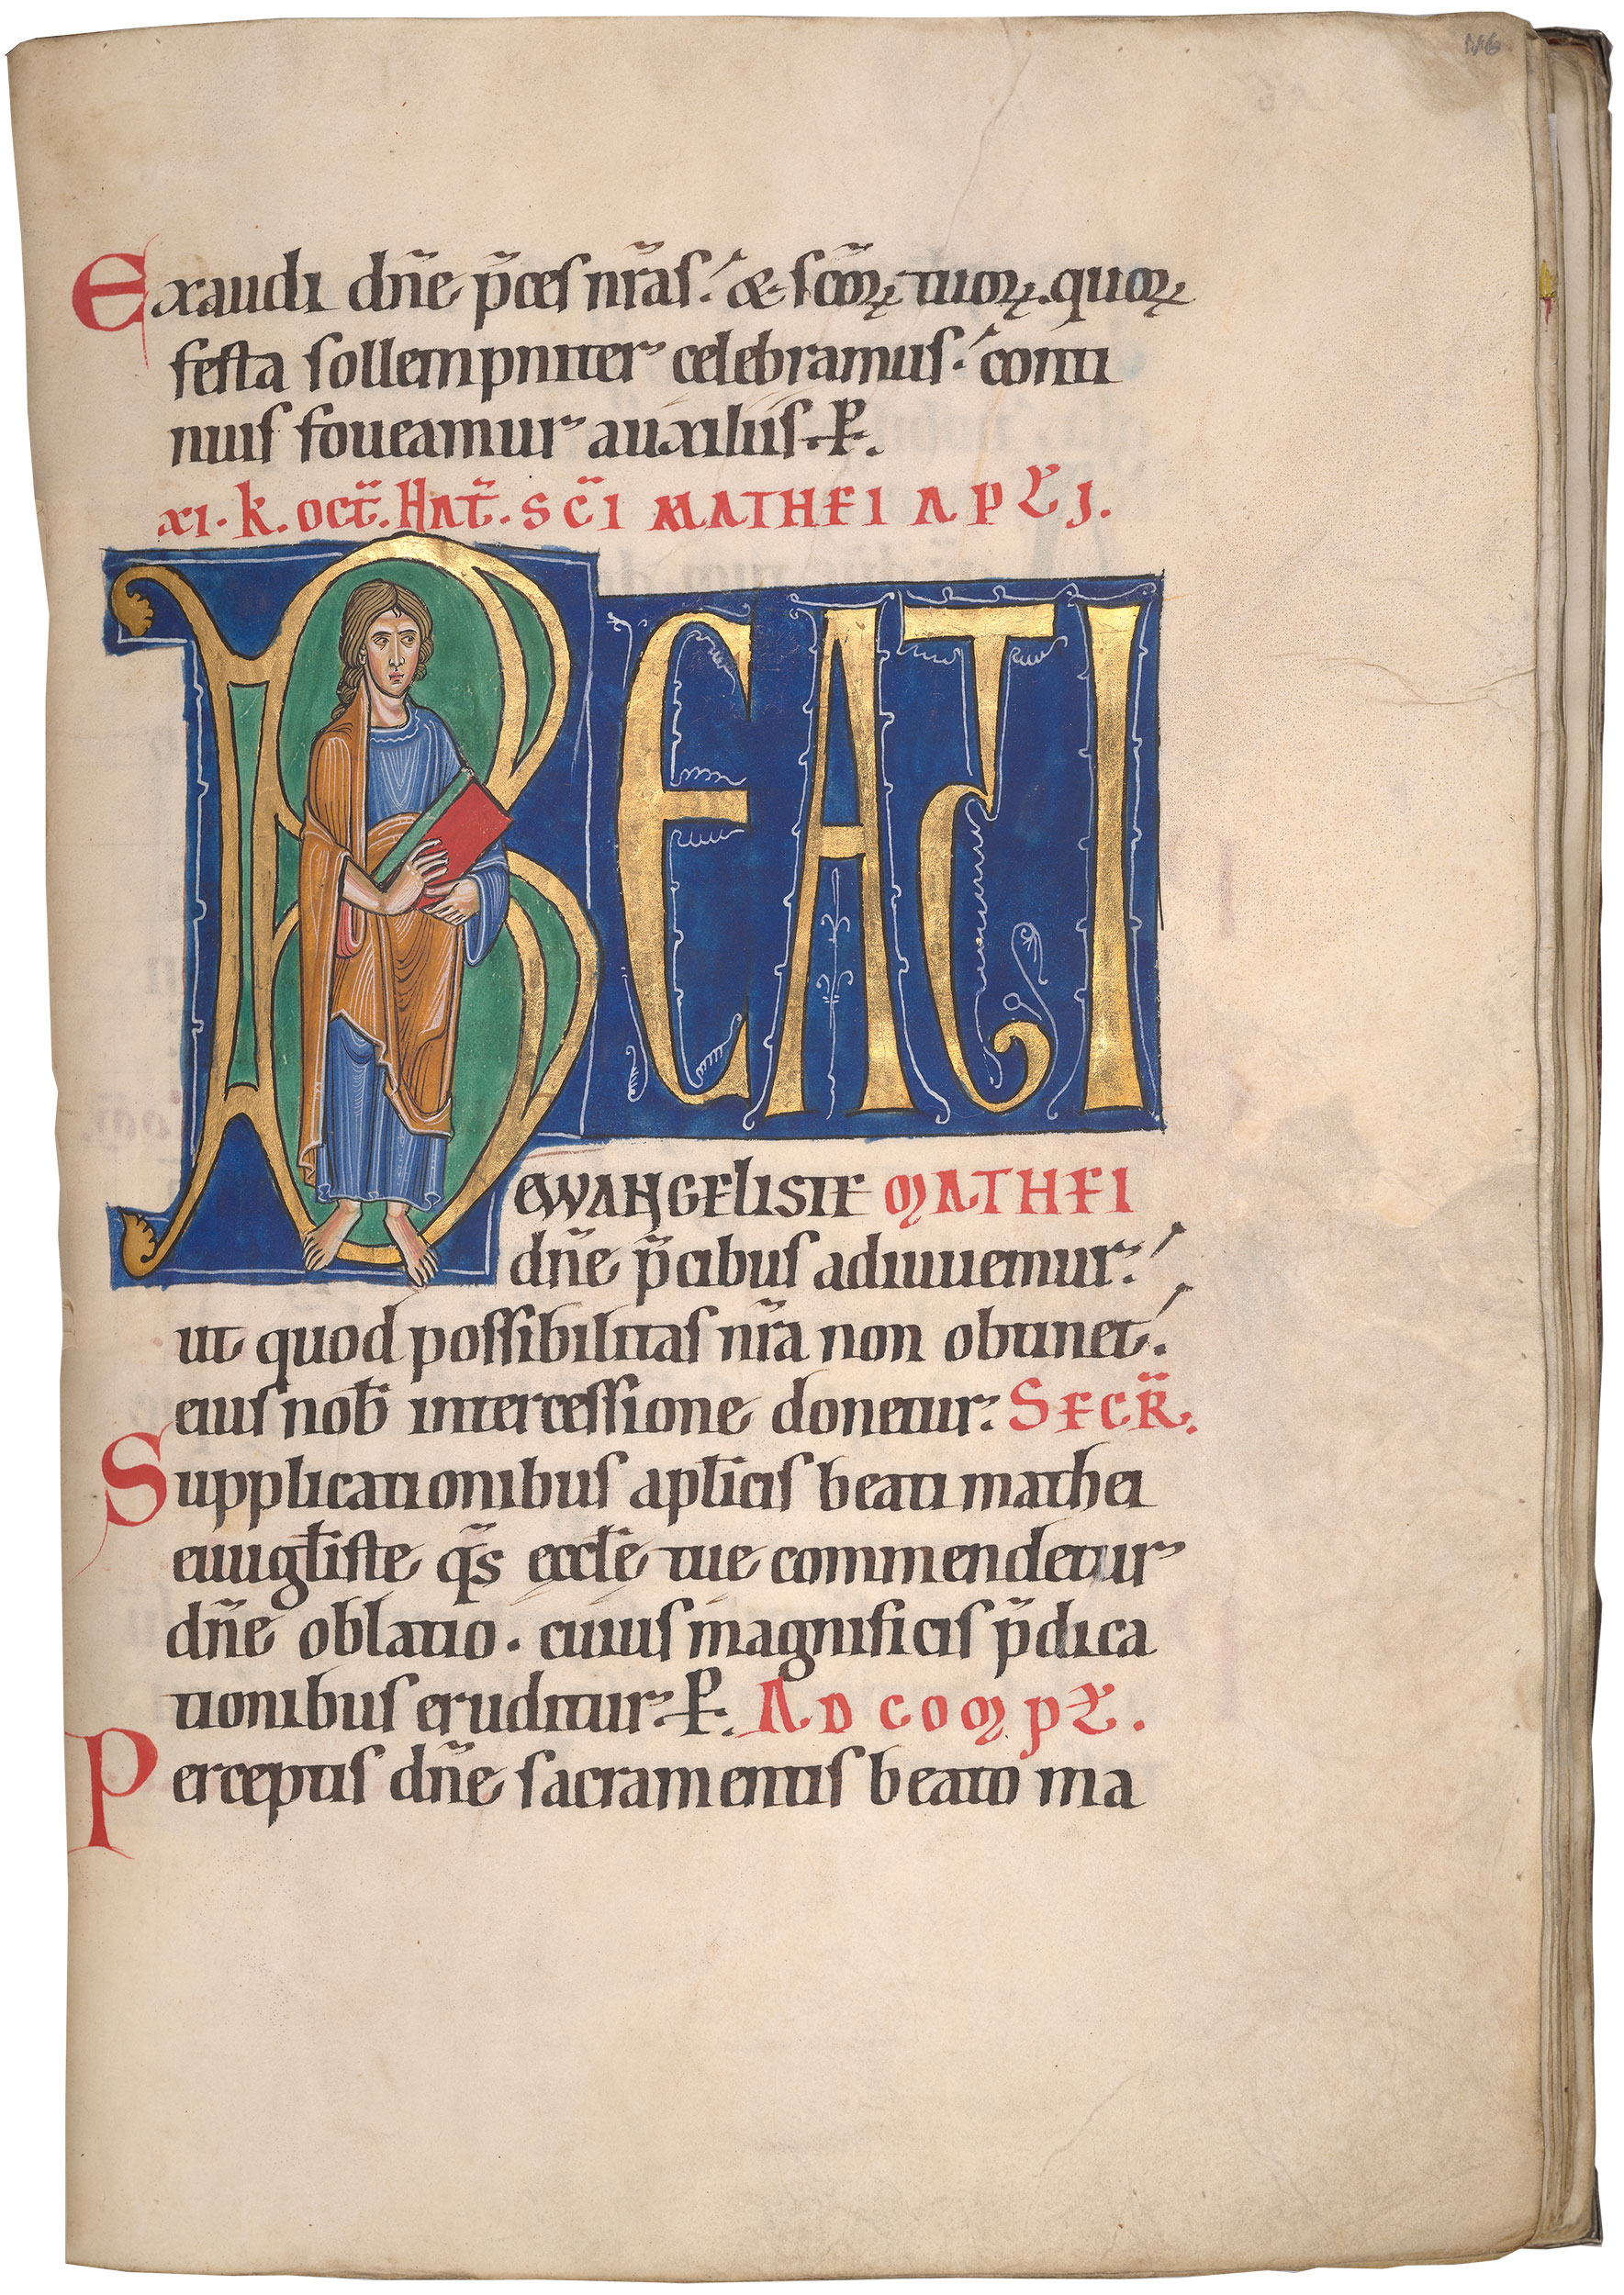 Exaudi dn̄e p̄ces nr̄as. & scōꝝ tuoꝝ. quoꝝ
festa sollempniter celebramus. conti
nuis foueamur auxiliis. P.
xi. k. oct̄. Nat̄. sc̄i MATHEI APLI.
BEATI
EWANGELISTE MATHEI
dn̄e p̄cibus adiuuemur.
ut quod possibilitas nr̄a non obtinet.
eius nob̄ intercessione donetur: SECR̄.
Supplicationibus apl̄icis beati mathei
euugl̄iste q̄s eccl̄e tue commendetur
dn̄e oblatio. cuius magnificis p̄dica
tionibus eruditur. P. AD COMPL.
Perceptis dn̄e sacramentis beato ma